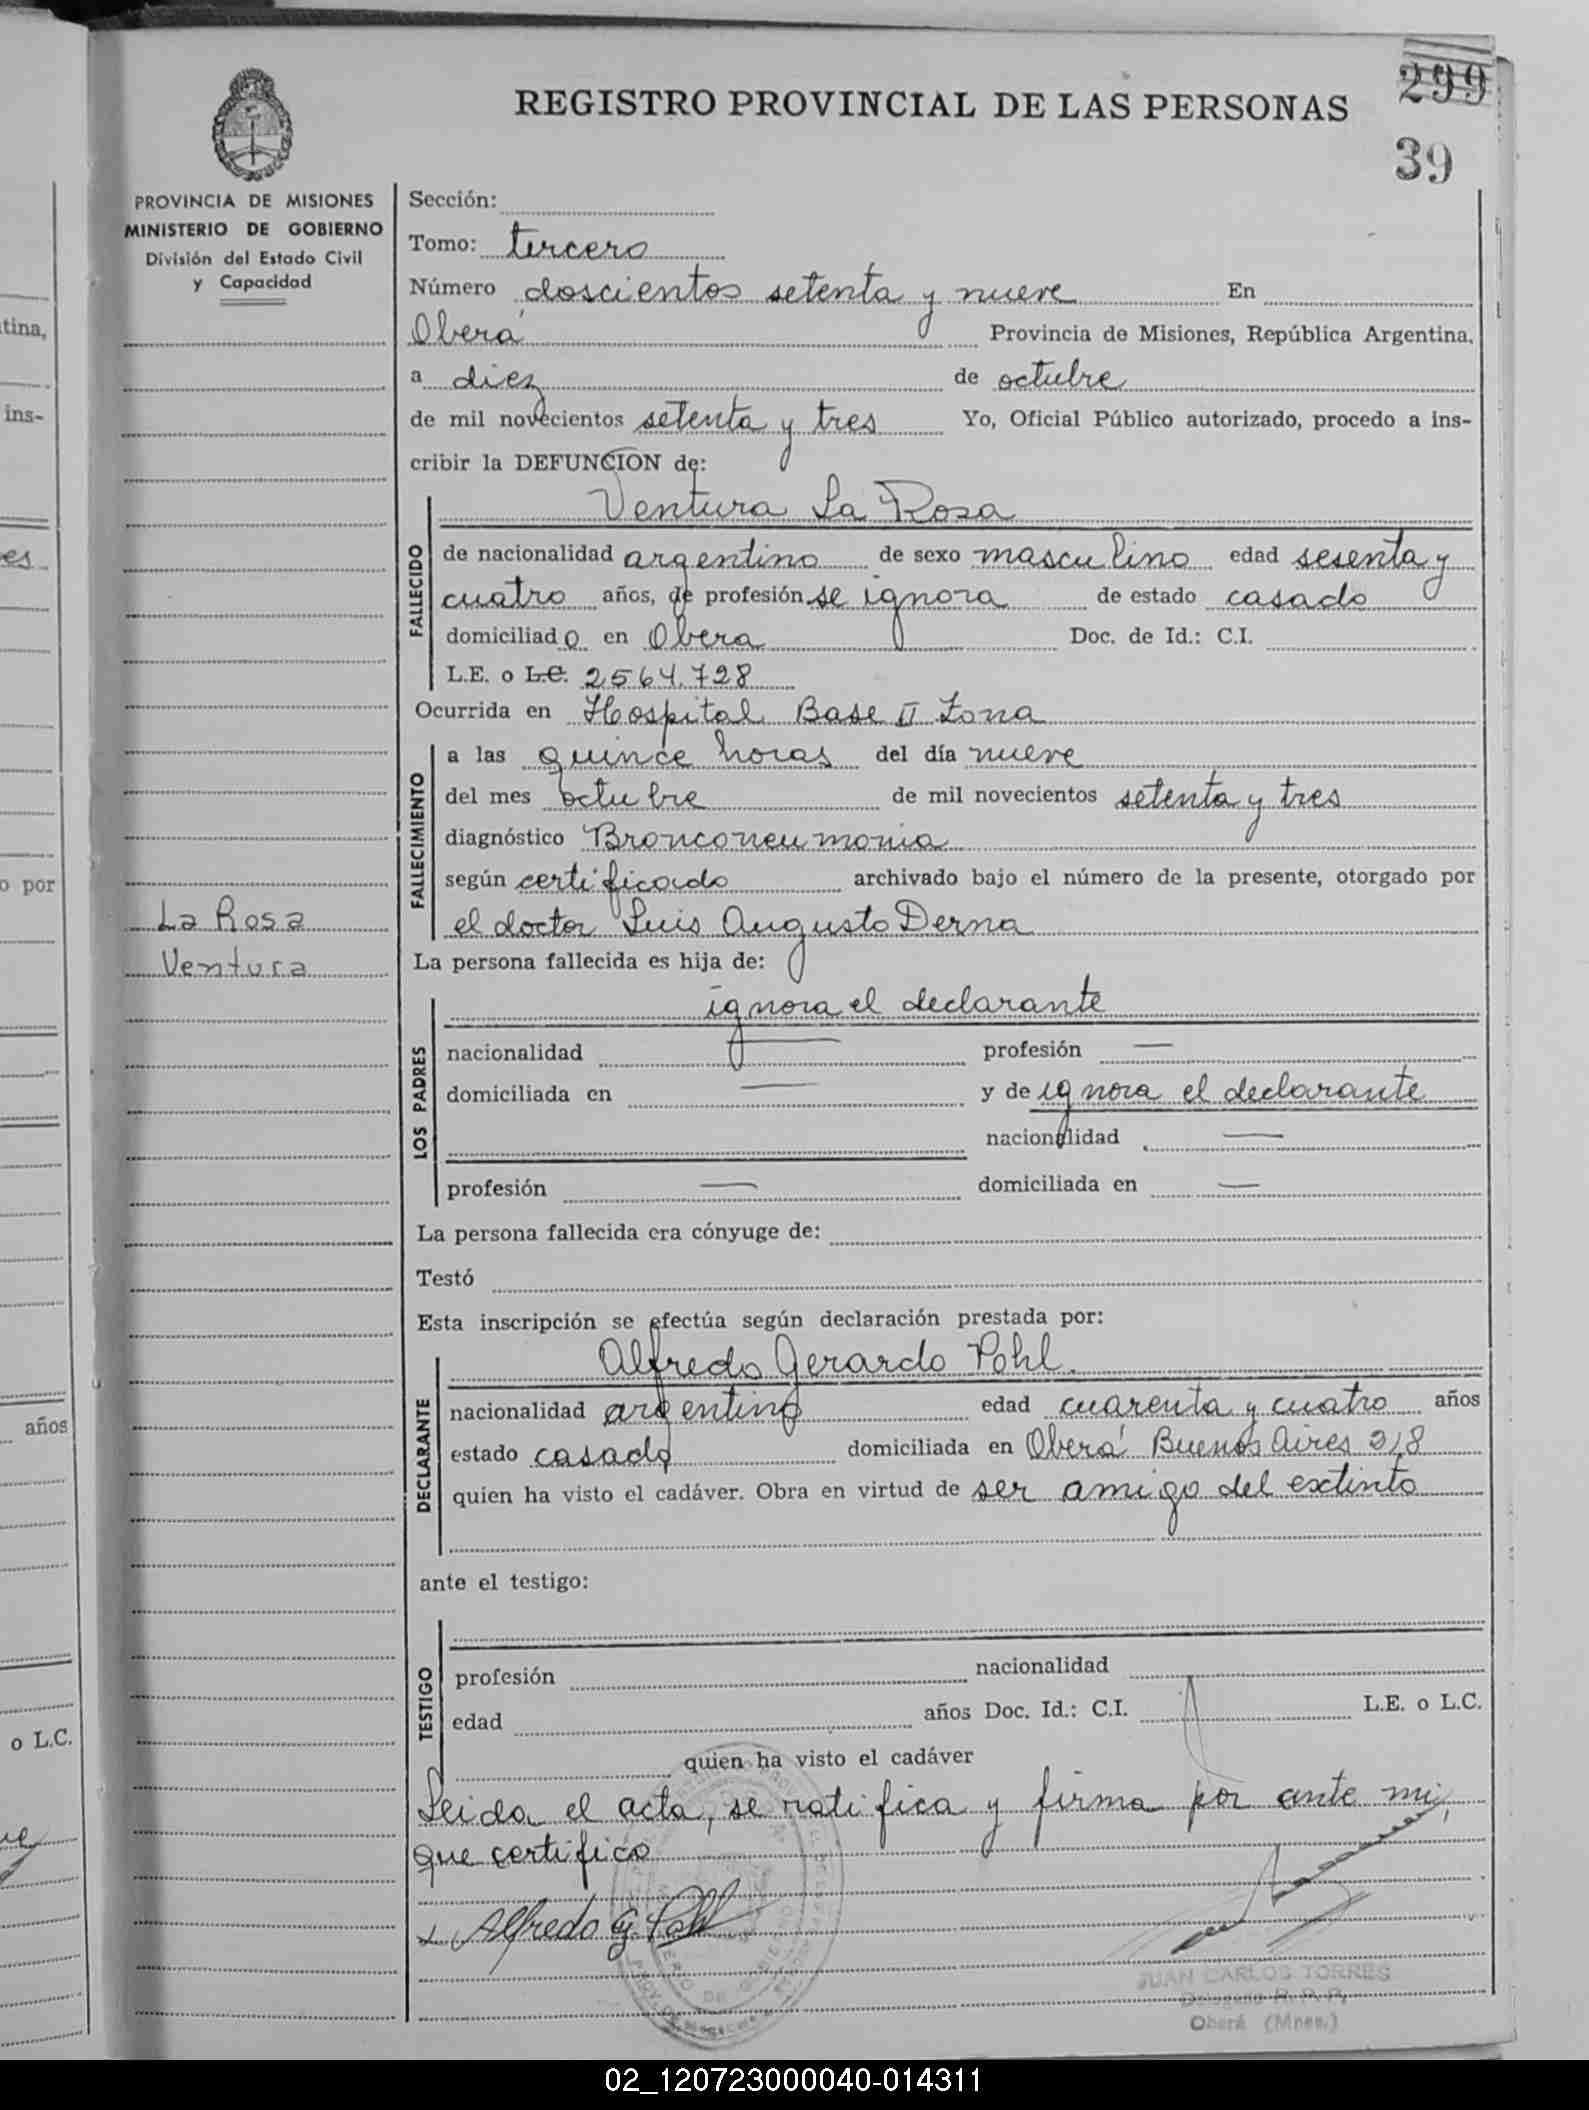 299
REGISTRO PROVINCIAL DE LAS PERSONAS
39
PROVINCIA DE MISIONES
MINISTERIO DE GOBIERNO
División del Estado Civil
y Capacidad
Sección:
Tomo: tercero
Número doscientos setenta y nueve En
Oberá Provincia de Misiones, República Argentina,
a diez de octubre
de mil novecientos setenta y tres Yo, Oficial Público autorizado, procedo a ins-
cribir la DEFUNCION de:
Ventura La Rosa
FALLECIDO
de nacionalidad argentino de sexo masculino edad sesenta y
cuatro años, de profesión se ignora de estado casado
domiciliado en Obera Doc. de Id.: C.I.
L.E. o L.C. 2564.728
Ocurrida en Hospital Base II Zona
FALLECIMIENTO
a las quince horas del día nueve
del mes octubre de mil novecientos setenta y tres
diagnóstico Bronconeumonia
según certificado archivado bajo el número de la presente, otorgado por
el doctor Luis Augusto Derna
La Rosa
Ventura
La persona fallecida es hija de:
LOS PADRES
ignora el declarante
nacionalidad — profesión —
domiciliada en — y de ignora el declarante
nacionalidad —
profesión — domiciliada en —
La persona fallecida era cónyuge de:
Testó
Esta inscripción se efectúa según declaración prestada por:
DECLARANTE
Alfredo Gerardo Pohl.
nacionalidad argentino edad cuarenta y cuatro años
estado casado domiciliada en Oberá Buenos Aires 318
quien ha visto el cadáver. Obra en virtud de ser amigo del extinto
ante el testigo:
TESTIGO
profesión nacionalidad
edad años Doc. Id.: C.I. L.E. o L.C.
quien ha visto el cadáver
Leida el acta, se ratifica y firma por ante mi,
que certifico
Alfredo G. Pohl
JUAN CARLOS TORRES
Delegado R. P. P.
Oberá (Mnes.)
tina,
ins-
es
o por
años
o L.C.
02_120723000040-014311